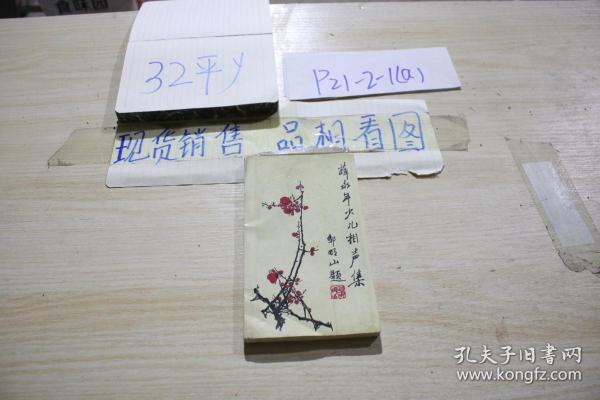 32平y
P21-2-1(a)
现货销售 品相看图
薛永年少儿相声集
邹明山题
孔夫子旧书网
www.kongfz.com